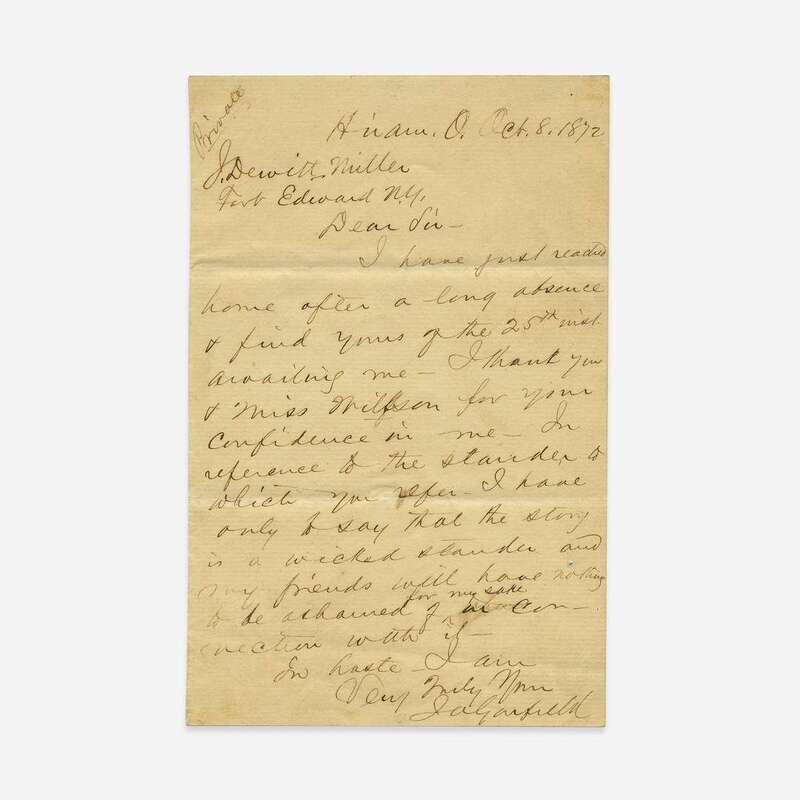 Private
Hiram, O. Oct. 8, 1872
J. Dewitt Miller
Fort Edward N.Y.
Dear Sir—
I have just reached
home after a long absence
& find yours of the 25th inst.
awaiting me— I thank you
& Miss for your
confidence in me— In
reference to the slander to
which you refer— I have
only to say that the story
is a wicked slander and
my friends will have nothing
for my sake
to be ashamed of in con-
nection with it—
In haste I am
Very Truly Yours
J A Garfield